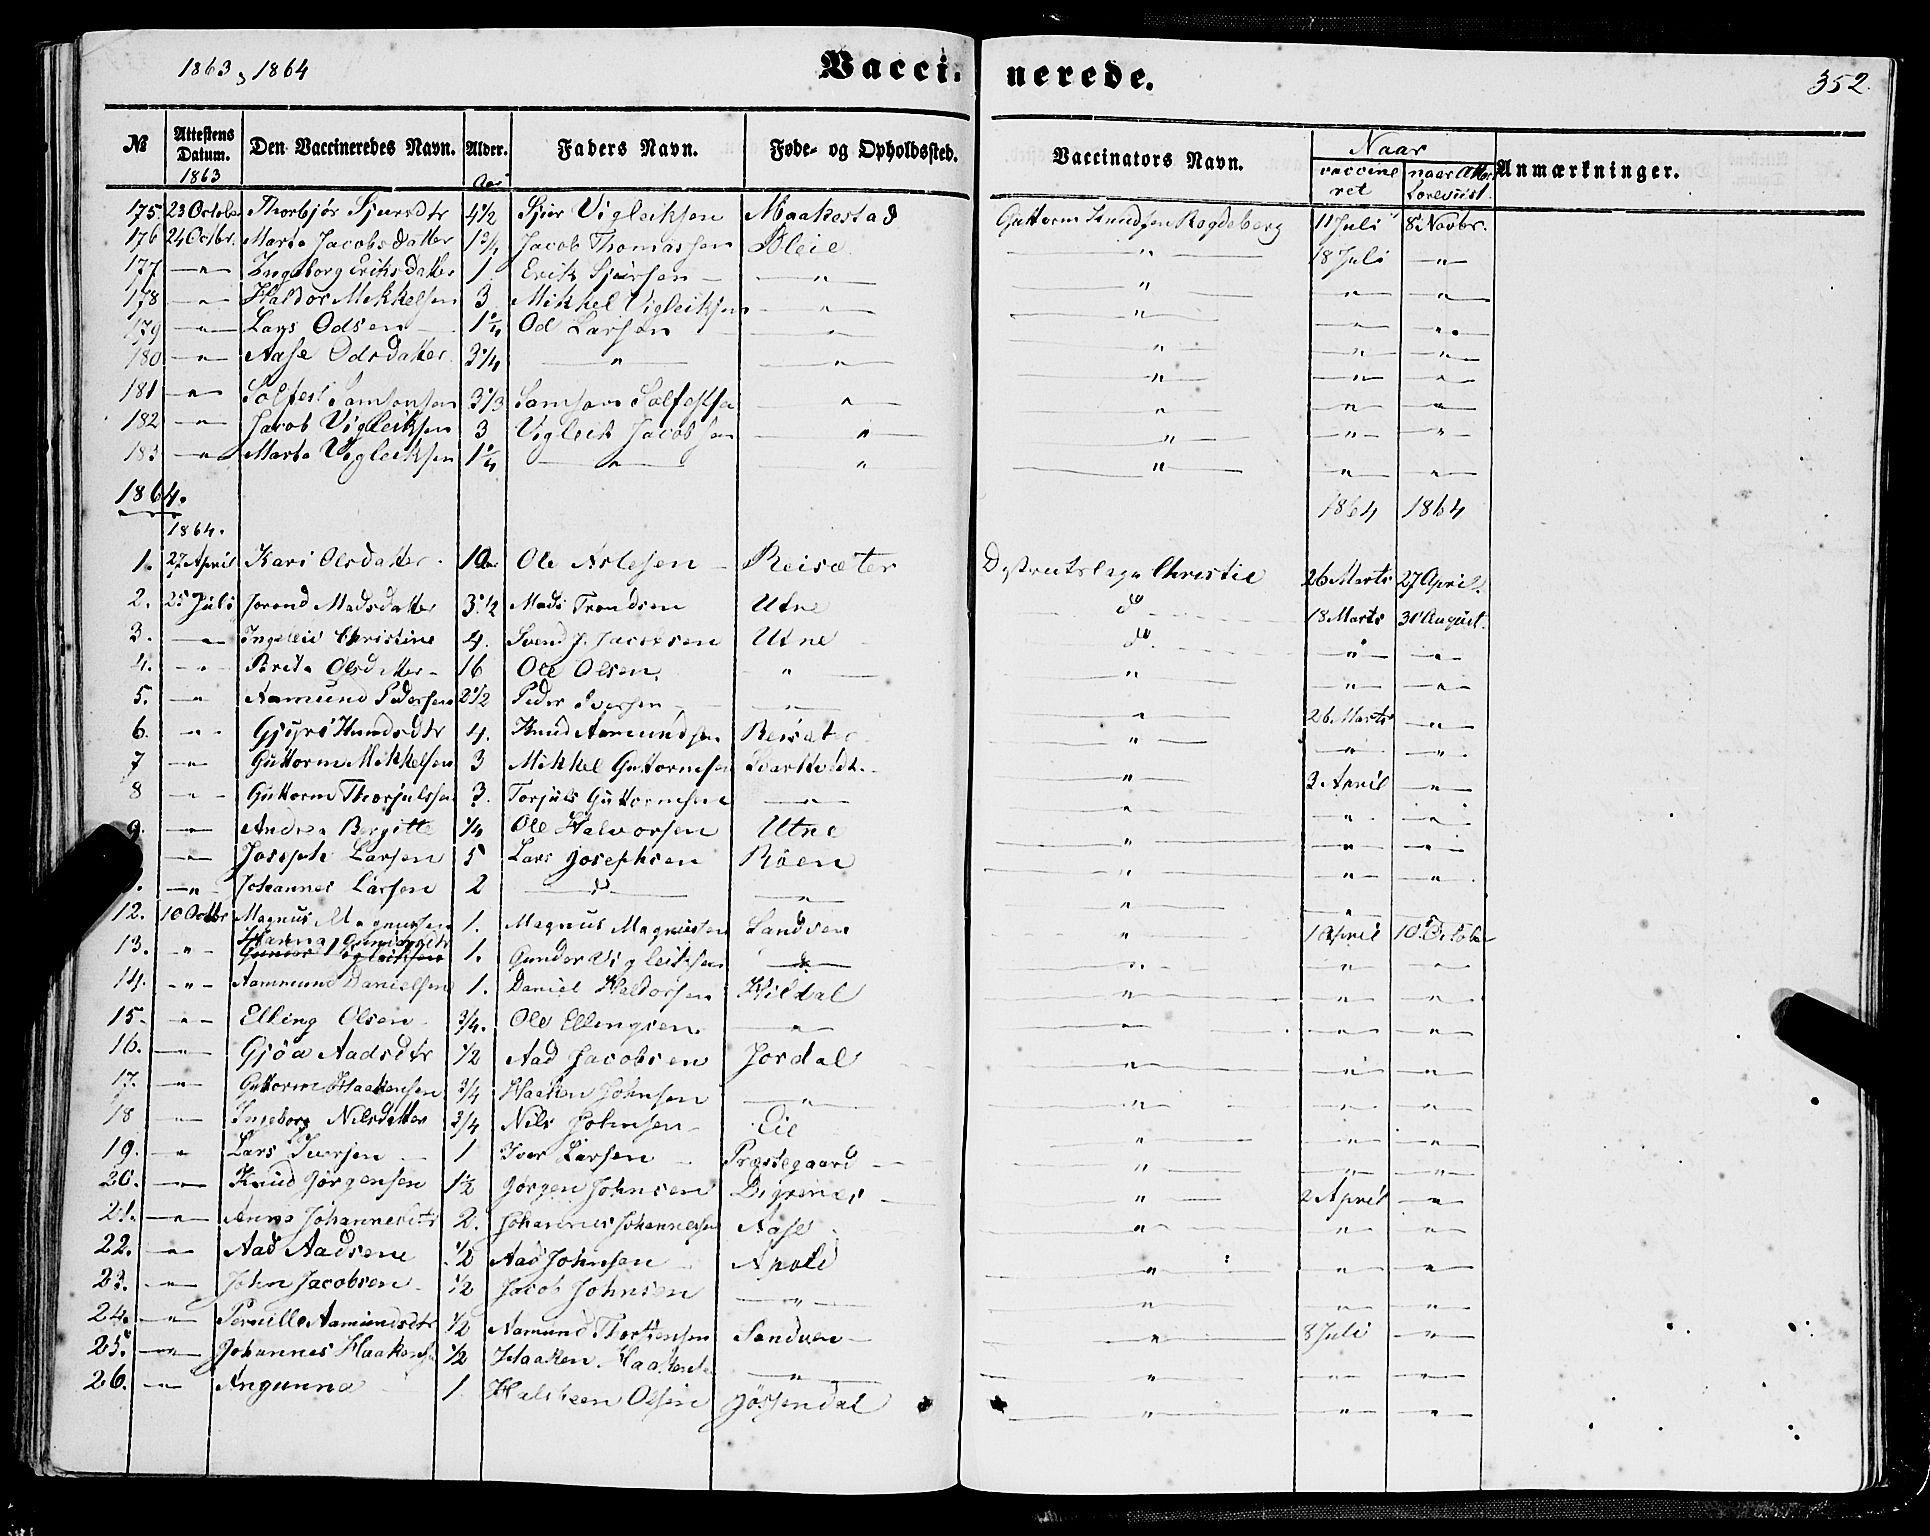 1863, 1864 Vacci- nerede. 352.
№ Attestens Datum. Den Vaccineredes Navn. Alder. Faders Navn. Føde- og Opholdssted. Vaccinators Navn. Naar Anmærkninger.
1863 Aar vaccineret
175. 23 Octobe Thorbjør Sjursdtr 4 1/2 Sjur Vigleiksen Maakestad Guttorm Knudsen Rogdeberg 11 Juli 8 Novbr.
176 24 Octbr. Marta Jacobsdatter Jacob Thomassen Bleie " 18 Juli "
177 " Ingeborg Eriksdatter 1 Erik Sjursen " " " "
178 " Haldor Mikkelsen 3 Mikkel Vigleiksen " " " "
179 " Lars Odsen 1 1/4 Od Larsen " " " "
180 " Aase Odsdatter 3 1/4 " " " " "
181 " Solfest Samsonsen 3 1/3 Samson Solfestse " " " "
182 " Jacob Vigleiksen 3 Vigleik Jacobsen " " " "
183 " Marta Vigleiksen 1 1/4 " " " " "
1864. 1864 1864
1864.
1. 27 April Kari Olsdatter 10 Ole Aslesen Reisæter Distriktslæge Christie 26 Marts 27 April.
2. 25 Juli Jorond Madsdatter 3 1/2 Mads Trondsen Utne do 18 Marts 31 August.
3. " Ingeleiv Christine 4. Svend J. Jacobsen Utne do " "
4. " Brita Olsdatter 16 Ole Olsen " " " "
5. " Aamund Pedersen 2 1/2 Peder Iversen " " 26 Marts "
6. " Gjyri Knudsdtr 4. Knud Aamundsen Reisæter " " "
7 " Guttorm Mikkelsen 3 Mikkel Guttormsen Svartvedt " 3 April "
8 " Guttorm Thorjulsen 3. Torjuls Guttormsen " " " "
9. " Andrea Bergitte 1/4 Ole Halvorsen Utne " " "
" Joseph Larsen 5 Lars Josephsen Røen " " "
" Johannes Larsen 2 do " " " "
12. 10 Octbr Magnus Magnussen 1. Magnus Magnussen Sandven " 1 April 10 October
13. " Hanna Gundersdtr
Gunder Vigleiksen 1. Gunder Vigleiksen do " " "
14. " Aammund Danielsen 1. Daniel Haldorsen Hildal " " "
15. " Elling Olsen 3/4. Ole Ellingsen " " " "
16. " Gjøa Aadsdtr 1/2 Aad Jacobsen Jordal " " "
17. " Guttorm Haakensen 3/4 Haaken Johnsen " " " "
18 " Ingeborg Nilsdatter 3/4 Nils Johnsen Eie " " "
19. " Lars Iversen 1 Iver Larsen Præstegaard " " "
20. " Knud Jørgensen 1 1/2 Jørgen Johnsen Digrenes " 2 April "
21. " Anna Johannesdtr 2. Johannes Johannessen Aase " " "
22. " Aad Aadsene 1/2 Aad Johnsen Apold " " "
23. " John Jacobsen 1/2 Jacob Johnsen " " " "
24. " Pernille Aamundsdtr 1/2 Aamund Thorstensen Sandven " 8 Juli "
25. " Johannes Haakense 1/2 Haaken Haakense " " " "
26. " Angunna 1. Halsteen Olsen Jøssendal " " "